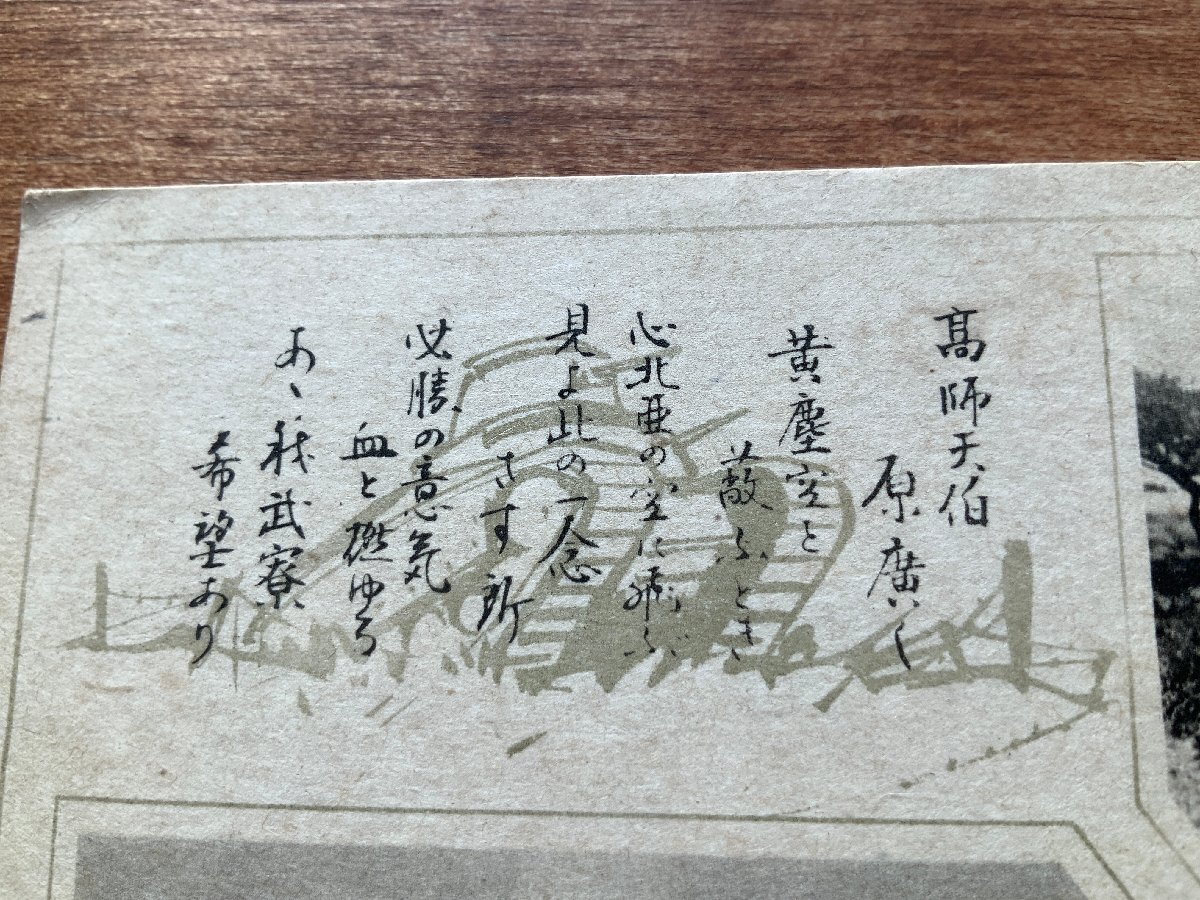 高師天伯
原廣く
黄塵空と
蔽ふとき
心北亜の空に飛ぶ
見よ此の一念
さす所
必勝の意気
血と燃ゆる
あゝ我武寮
希望あり